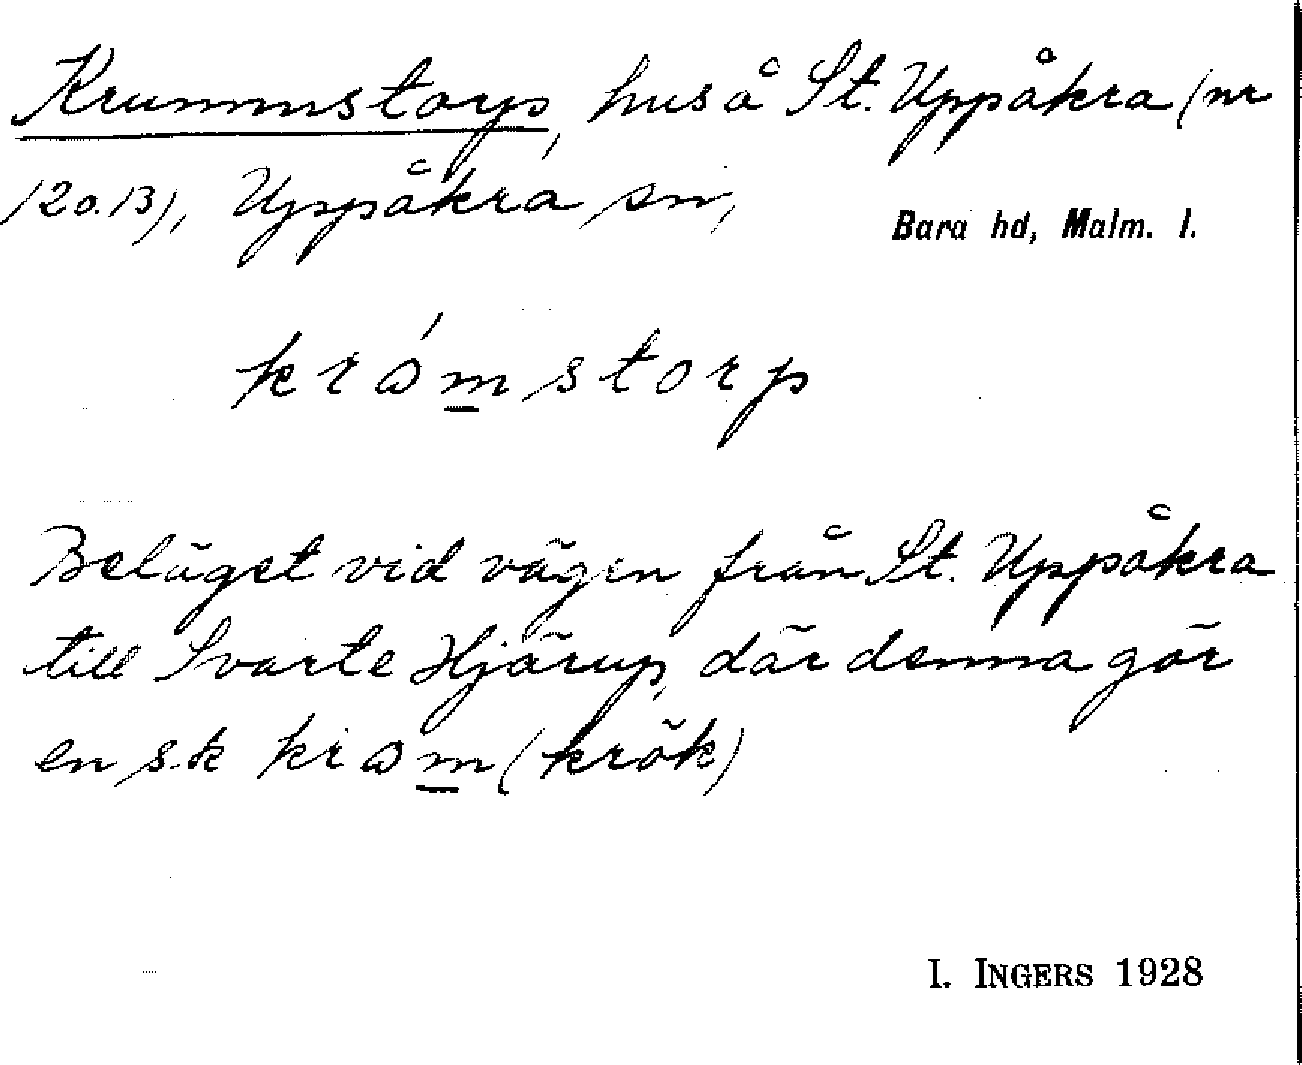 Krummstorp, hus å St. Uppåkra (nr
12 o. 13), Uppåkra sn,
Bara hd, Malm. l.
krɷ́m̲storp
Beläget vid vägen från St. Uppåkra
till Svarte Hjärup, där denna gör
en s.k krɷm̲ (krök)
I. INGERS 1928